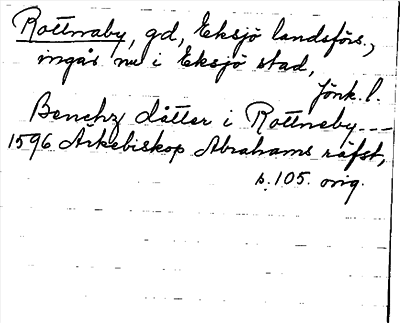 Rottnaby, gd, Eksjö landsförs.,
ingås nu i Eksjö stad,
Jönk. l.
Benchz dåtter i Rottneby ---
1596 Ärkebiskop Abrahams räfst,
s. 105. orig.